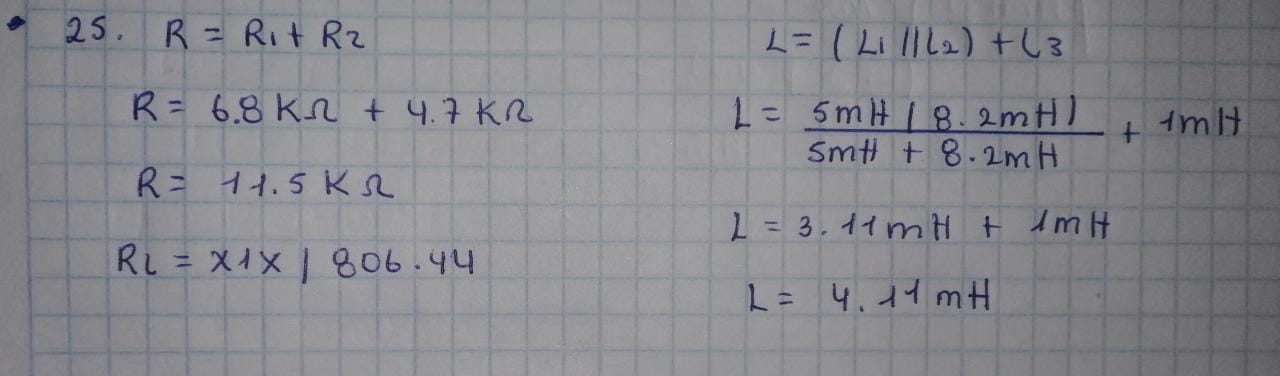 25. R = R1 + R2
R = 6.8 KΩ + 4.7 KΩ
R = 11.5 KΩ
RL = x1x | 806.44
L = (L1 || L2) + L3
L = 5mH ( 8.2mH ) + 1mH
5mH + 8.2mH
L = 3.11mH + 1mH
L = 4.11mH